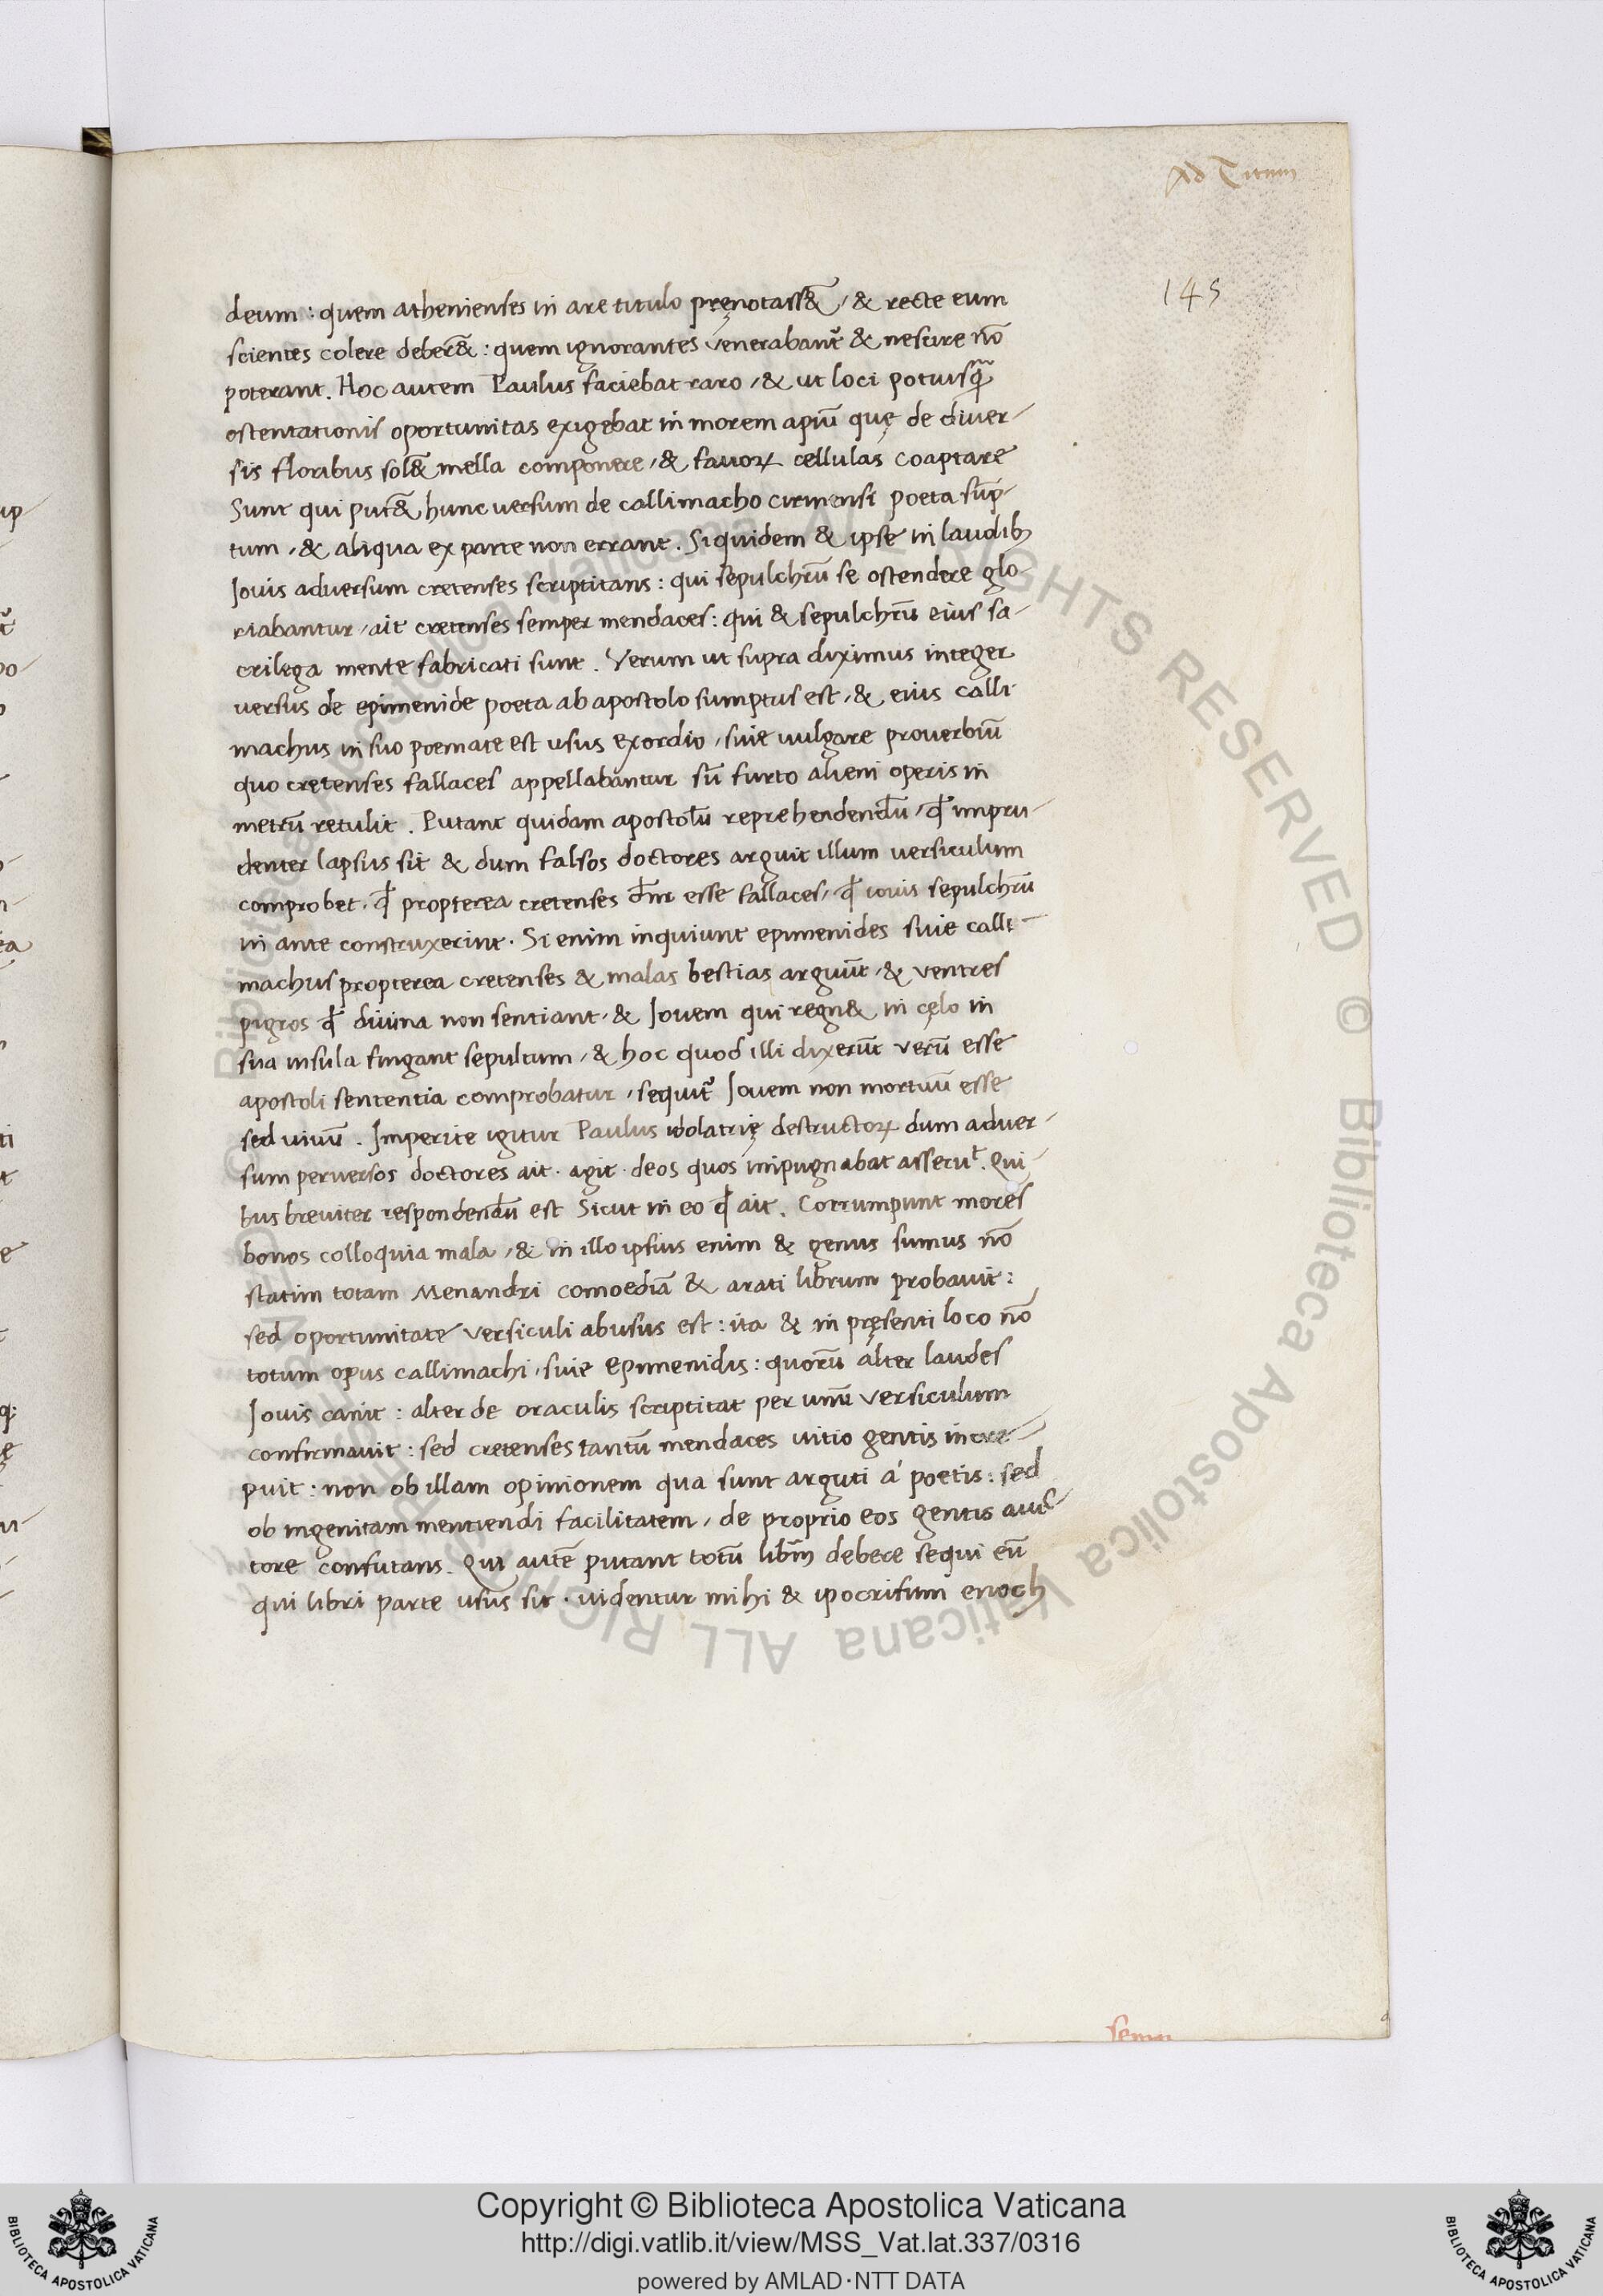 Ad Titum
145
deum : quem athenienses in are titulo pręnotass&̄ / & recte eum
scientes colere deber&̄ : quem ignorantes venerabant᷑ & nescire nō
poterant . Hoc autem Paulus faciebat raro / & ut loci potuisq̄
ostentationis oportunitas exigebat in morem apiū quę de diver-
sis floribus sol&̄ mella componere / & favoꝝ cellulas coaptare
Sunt qui put&̄ hunc versum de callimacho cirinensi poeta sūp-
tum / & aliqua ex parte non errant . Siquidem & ipse in laudibꝫ
Jovis adversum cretenses scriptitans : qui sepulchrū se ostendere glo-
riabantur / ait cretenses semper mendaces : qui & sepulchrū eius sa-
crilega mente fabricati sunt . Verum ut supra diximus integer
versus de epimenide poeta ab apostolo sumptus est / & eius calli
machus in suo poemate est usus exordio / sive vulgare proverbiū
quo cretenses fallaces appellabantur sū furto alieni operis in
metrū retulit . Putant quidam apostolū reprehendendū / ꝙ impru-
denter lapsus sit & dum falsos doctores arguit illum versiculum
comprobet . ꝙ propterea cretenses dn̄r esse fallaces / ꝙ iovis sepulchrū
in ante construxerint . Si enim inquiunt epimenides sive calli-
machus propterea cretenses & malas bestias arguūt / & ventres
pigros ꝙ divina non sentiant / & Jovem qui regn& in cęlo in
sua insula fingant sepultum / & hoc quod illi dixerūt verū esse
apostoli sententia comprobatur / sequit᷑ Jovem non mortuū esse
sed vivū . Imperite igitur Paulus idolatrię destructoꝝ dum adver-
sum perversos doctores ait . agit . deos quos impugnabat asserut̄ . Qui-
bus breviter respondendū est Sicut in eo ꝙ ait . Corrumpunt mores
bonos colloquia mala / & in illo ipsius enim & genus sumus nō
statim totam Menandri comoediā & arati librum probavit :
sed oportunitate versiculi abusus est : ita & in pręsenti loco nō
totum opus callimachi / sive Epimenidis : quorū alter laudes
Jovis canit : alter de oraculis scriptitat per unū versiculum
confirmavit : sed cretenses tantū mendaces vitio gentis incre-
puit : non ob illam opinionem qua sunt arguti á poetis : sed
ob ingenitam mentiendi facilitatem / de proprio eos gentis auc-
tore confutans . Qui autē putant totū libr̄m debere sequi eū
qui libri parte usus sit . videntur mihi & ipocrifum enoch
Copyright © Biblioteca Apostolica Vaticana
http://digi.vatlib.it/view/MSS_Vat.lat.337/0316
powered by AMLAD·NTT DATA
BIBLIOTECA APOSTOLICA VATICANA
BIBLIOTECA APOSTOLICA VATICANA
© Biblioteca Apostolica Vaticana ALL RIGHTS RESERVED